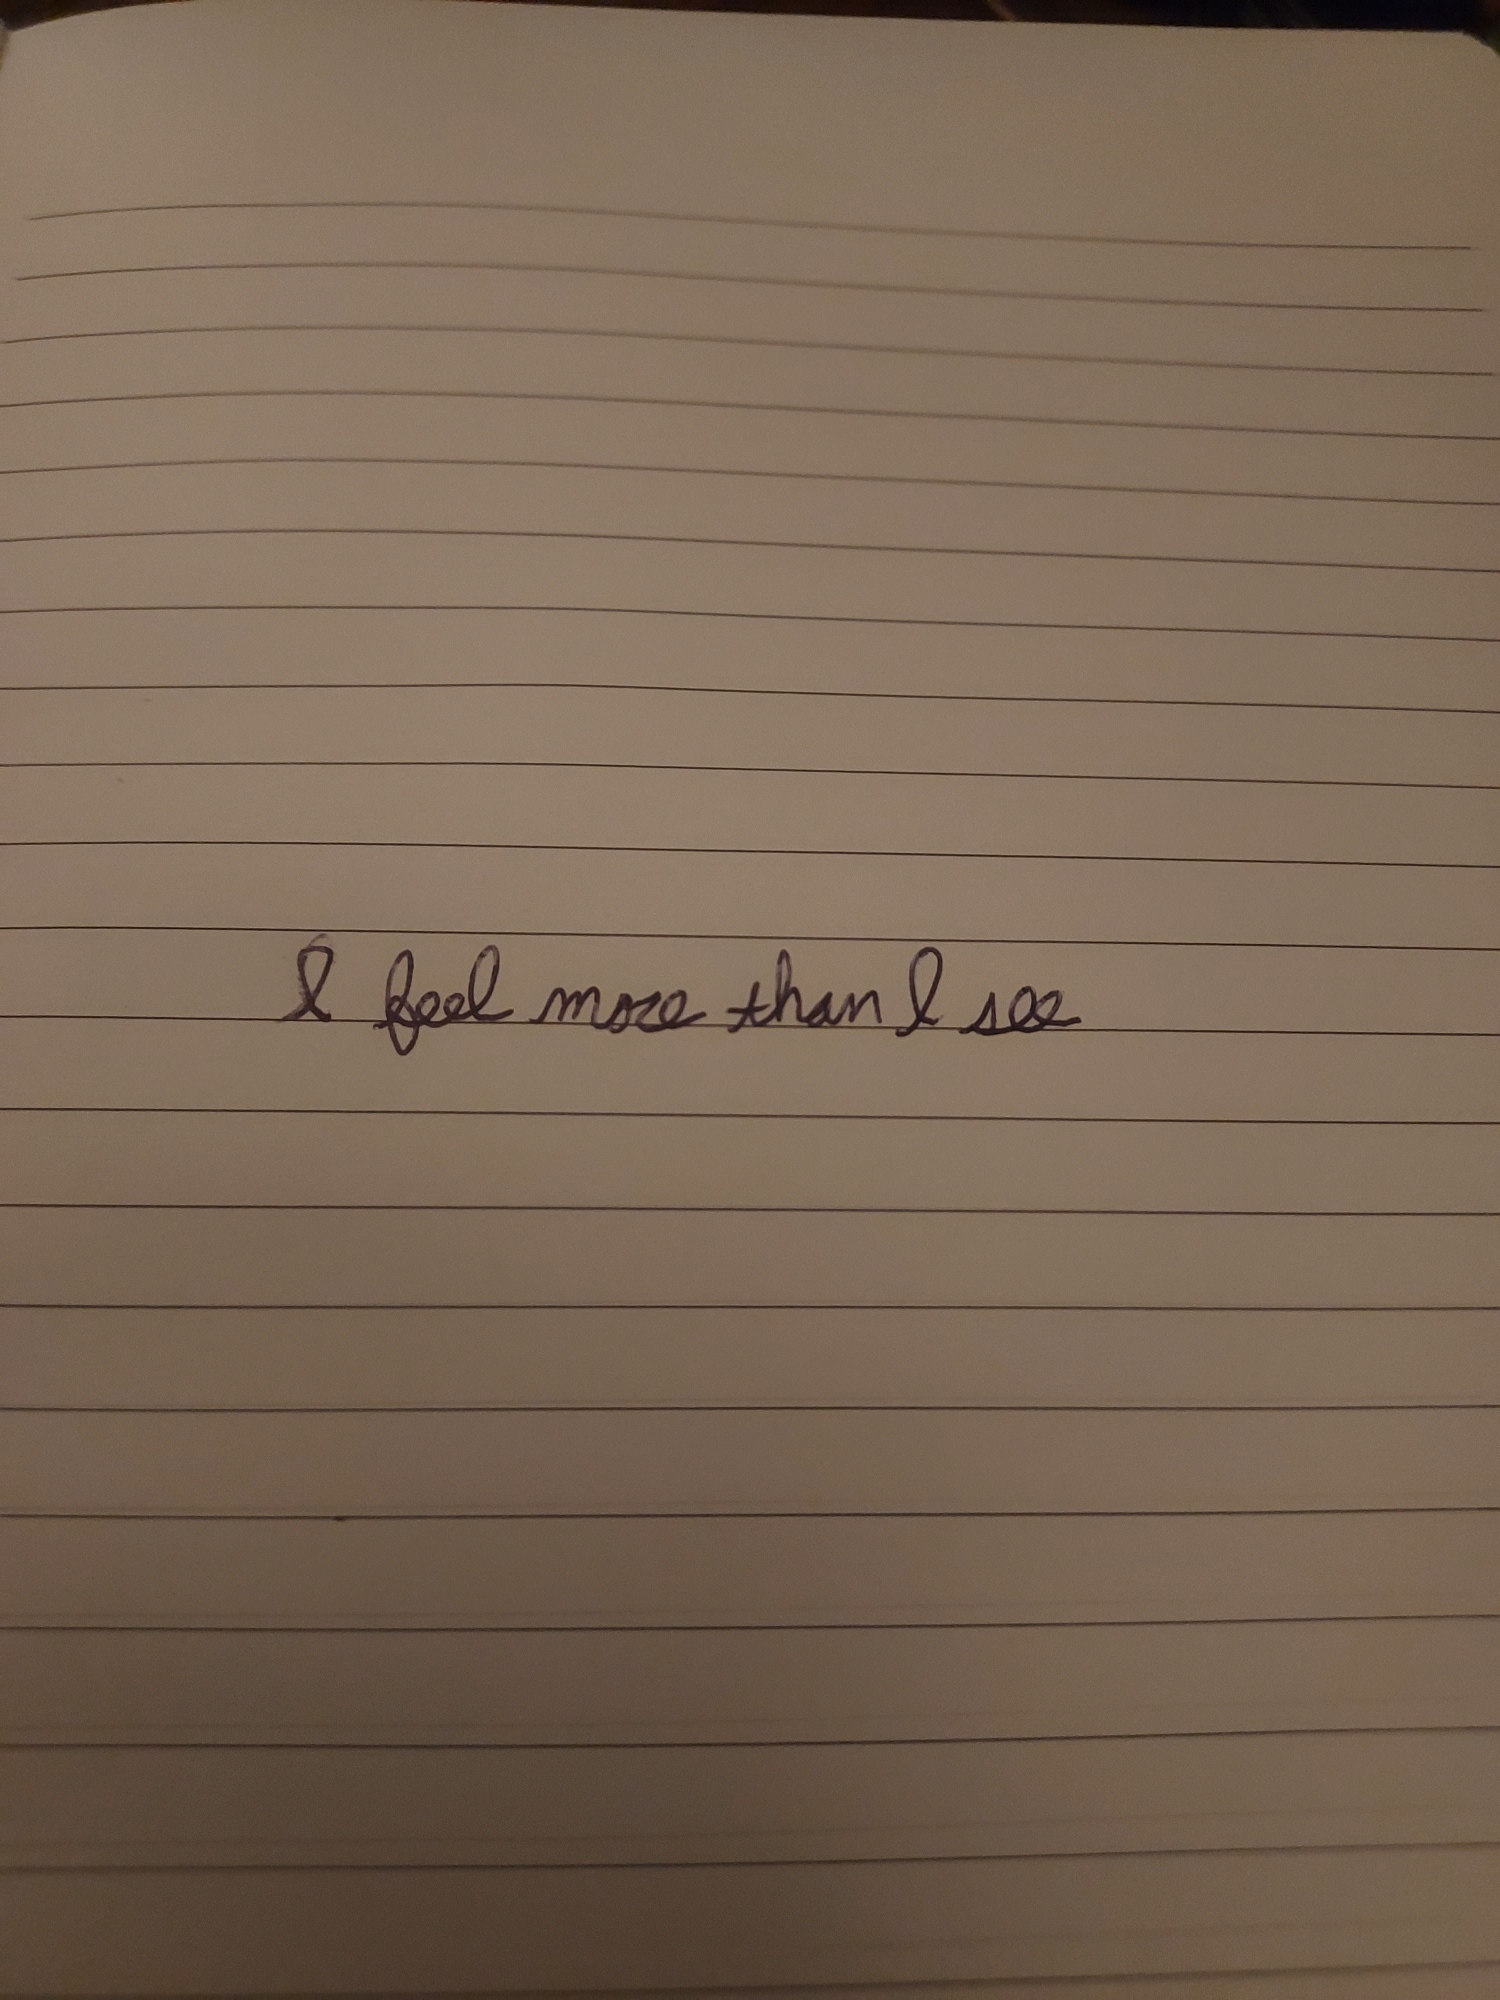 I feel more than I see